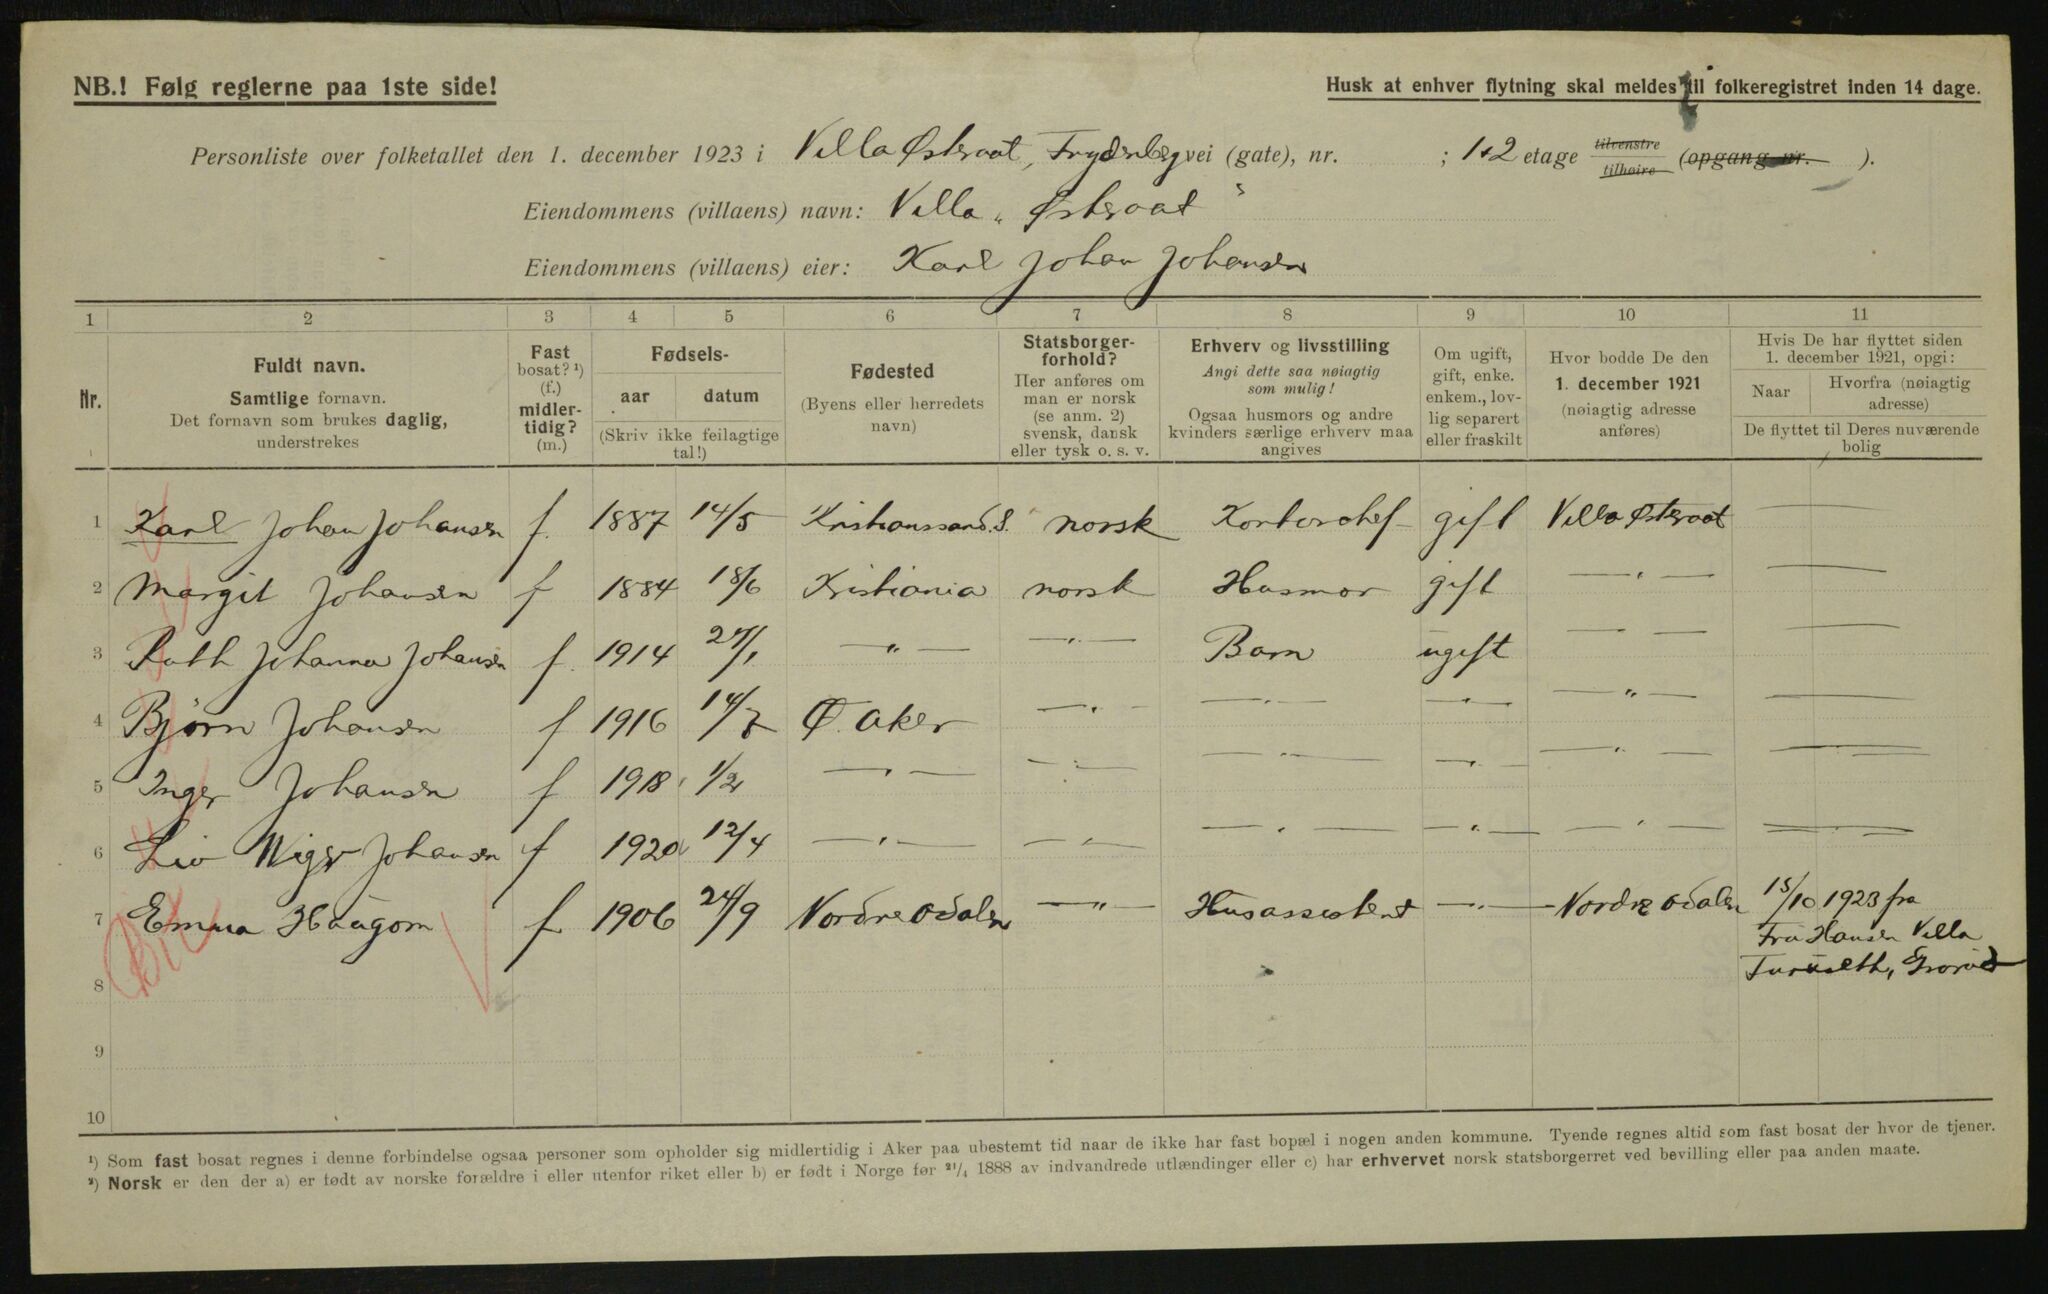 NB.! Følg reglerne paa 1ste side!
Husk at enhver flytning skal meldes til folkeregistret inden 14 dage.
Personliste over folketallet den 1. december 1923 i Villa Østeraat, Frydenberg vei (gate), nr. ; 1+2 etage tilvenstre tilhøire (opgang nr. ).
Eiendommens (villaens) navn: Villa „Østeraat"
Eiendommens (villaens) eier: Karl Johan Johansen
1 2 3 4 5 6 7 8 9 10 11
Nr.
Fuldt navn.
Samtlige fornavn.
Det fornavn som brukes daglig,
understrekes
Fast
bosat? ¹)
(f.)
midler-
tidig?
(m.)
Fødsels-
aar datum
(Skriv ikke feilagtige
tal!)
Fødested
(Byens eller herredets
navn)
Statsborger-
forhold?
Her anføres om
man er norsk
(se anm. 2)
svensk, dansk
eller tysk o. s. v.
Erhverv og livsstilling
Angi dette saa nøiagtig
som mulig!
Ogsaa husmors og andre
kvinders særlige erhverv maa
angives
Om ugift,
gift, enke.
enkem., lov-
lig separert
eller fraskilt
Hvor bodde De den
1. december 1921
(nøiagtig adresse
anføres)
Hvis De har flyttet siden
1. december 1921, opgi:
Naar
Hvorfra (nøiagtig
adresse)
De flyttet til Deres nuværende
bolig
1 Karl Johan Johansen f. 1887 14/5 Kristianssand S. norsk Kontorchef gift Villa Østeraat —
2 Margit Johansen f 1884 18/6 Kristiania norsk Husmor gift —"— —
3 Ruth Johanna Johansen f. 1914 24/1 —"— —"— Barn ugift —"— —
4 Bjørn Johansen f 1916 14/7 Ø. Aker —"— —"— —"— —"— —
5 Inger Johansen f 1918 1/2 —"— —"— —"— —"— —"— —
6 Liv Wiger Johansen f 1920 12/4 —"— —"— —"— —"— —"— —
7 Emma Haugom f 1906 24/9 Nordre Odalen —"— Husassistent —"— Nordre Odalen 15/10 1923 fra
Fru Hansen Villa
8 Furuseth, Grorud
9
10
¹) Som fast bosat regnes i denne forbindelse ogsaa personer som opholder sig midlertidig i Aker paa ubestemt tid naar de ikke har fast bopæl i nogen anden kommune. Tyende regnes altid som fast bosat der hvor de tjener.
²) Norsk er den der a) er født av norske forældre i eller utenfor riket eller b) er født i Norge før 21/4 1888 av indvandrede utlændinger eller c) har erhvervet norsk statsborgerret ved bevilling eller paa anden maate.